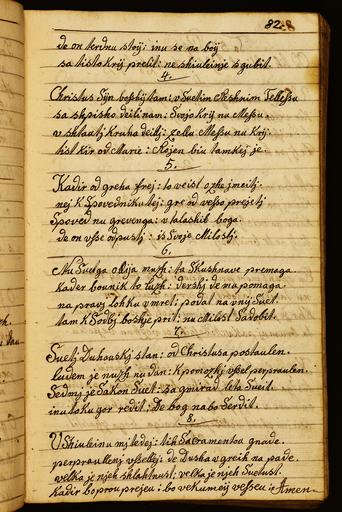 82.
de on terdnu stoji: inu se na boij
sa tisto krij prelit: ne skiuleinje sgubit.
4.
Christus Sijn boshij tam: v Suetim Reshnim Tellessu
sa shpisho deili nam: Svojo krij nu Messu.
v shtauti kruha deilj: zellu Messu nu krij.
tist kir od Marie: Rojen biu tamkej je.
5.
Kadir od greha frej: to veist ozhe jmeitj.
nej k Spovedniku tej: gre od vsso prejetj
Spoved nu grevenga: v talaskil boga.
de on vsse odpustj: is Svoje Milostj.
6.
Nu Svetga ollija muzh: ta Skushnave premaga.
kader bounik to luzh: vershj de ma pomaga
na pravj lohku vmret: podat na vnij Suet.
tam k Sodbj boshje prit: nu Milost Sadobit.
7.
Suetj Duhouskj stan: od Christusa postaulen.
ludem je nuzh nu dan: k pomozhj vssel perpraulen.
Sedmj je Sakon Suet: sa gmirad leta Sueit.
inu toku gor redit: De bog na bo Serdit.
8.
V Shiuleinu mi tedej: tih Sacramentou gnade.
perpraulenj vsselej: de Duska v greih na pade.
velka je njeh shlahtnust: velka je njeh Suetust.
kadir bo prou prejeu: bo vekumej vesseu. Amen.